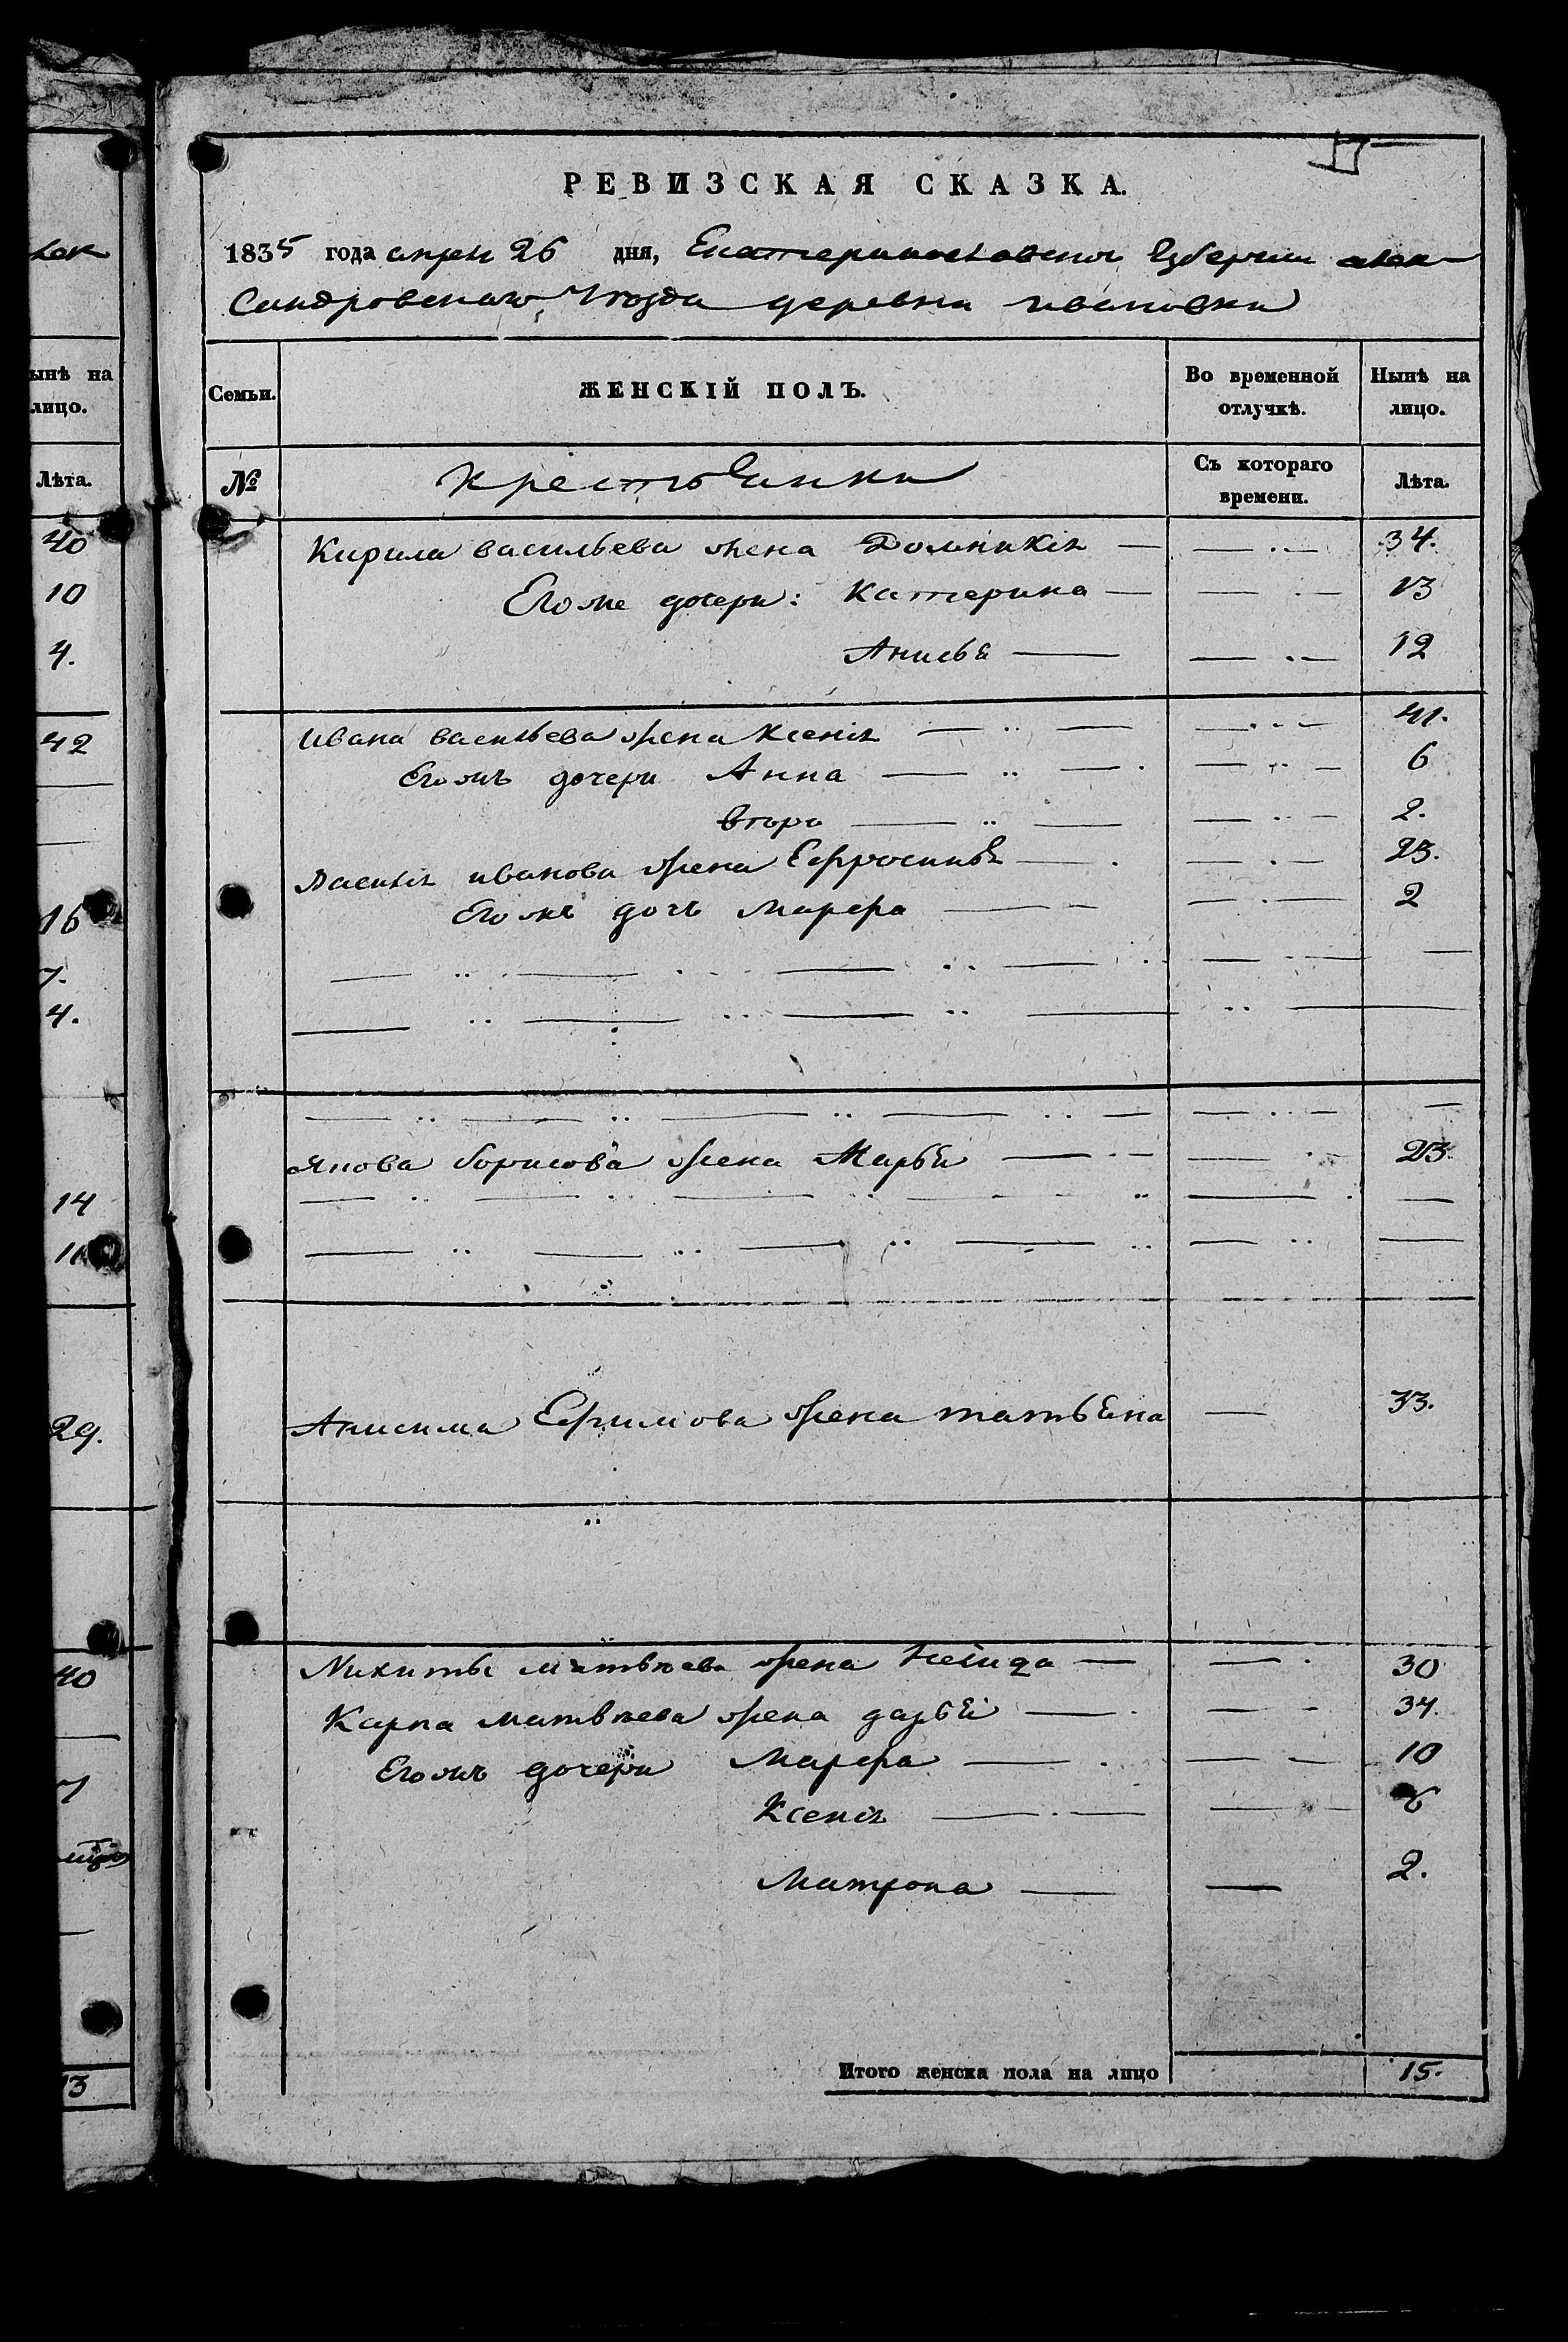 лек
ынѣ на
лицо.
Лѣта.
40
10
4.
42
16
7.
4.
14
29.
40
7
13
РЕВИЗСКАЯ СКАЗКА.
1835 года апреля 26 дня, Екатеринославской Губернии алек
Сандровскаго Уѣзда деревни ивановки
Семьи. ЖЕНСКІЙ ПОЛЪ. Во временной отлучкѣ. Нынѣ на лицо.
№ крестьянки Съ котораго времени. Лѣта.
Кирила васильева жена Домникія — — . — 34.
Его же дочери: Катерина — — . — 13
Анисья — — . — 12
Ивана васильева жена Ксенія — .. — — . . — 41.
Его жъ дочери Анна — .. — . — .. — 6
втора — .. — — . . — 2.
Василія иванова жена Ефросинья — . — . — 23.
Его жъ дочь Марфа — — — . — 2
Якова борисова жена Марья — . — — . — 23.
Анисима Ефимова жена татьяна — 33.
Никиты матвѣева жена — — . 30
Карпа матвѣева жена дарья — . — — 34.
Его жъ дочери Марфа — . — — 10
Ксенія — . — — — 6
Матрона — — 2.
Итого женска пола на лицо 15.